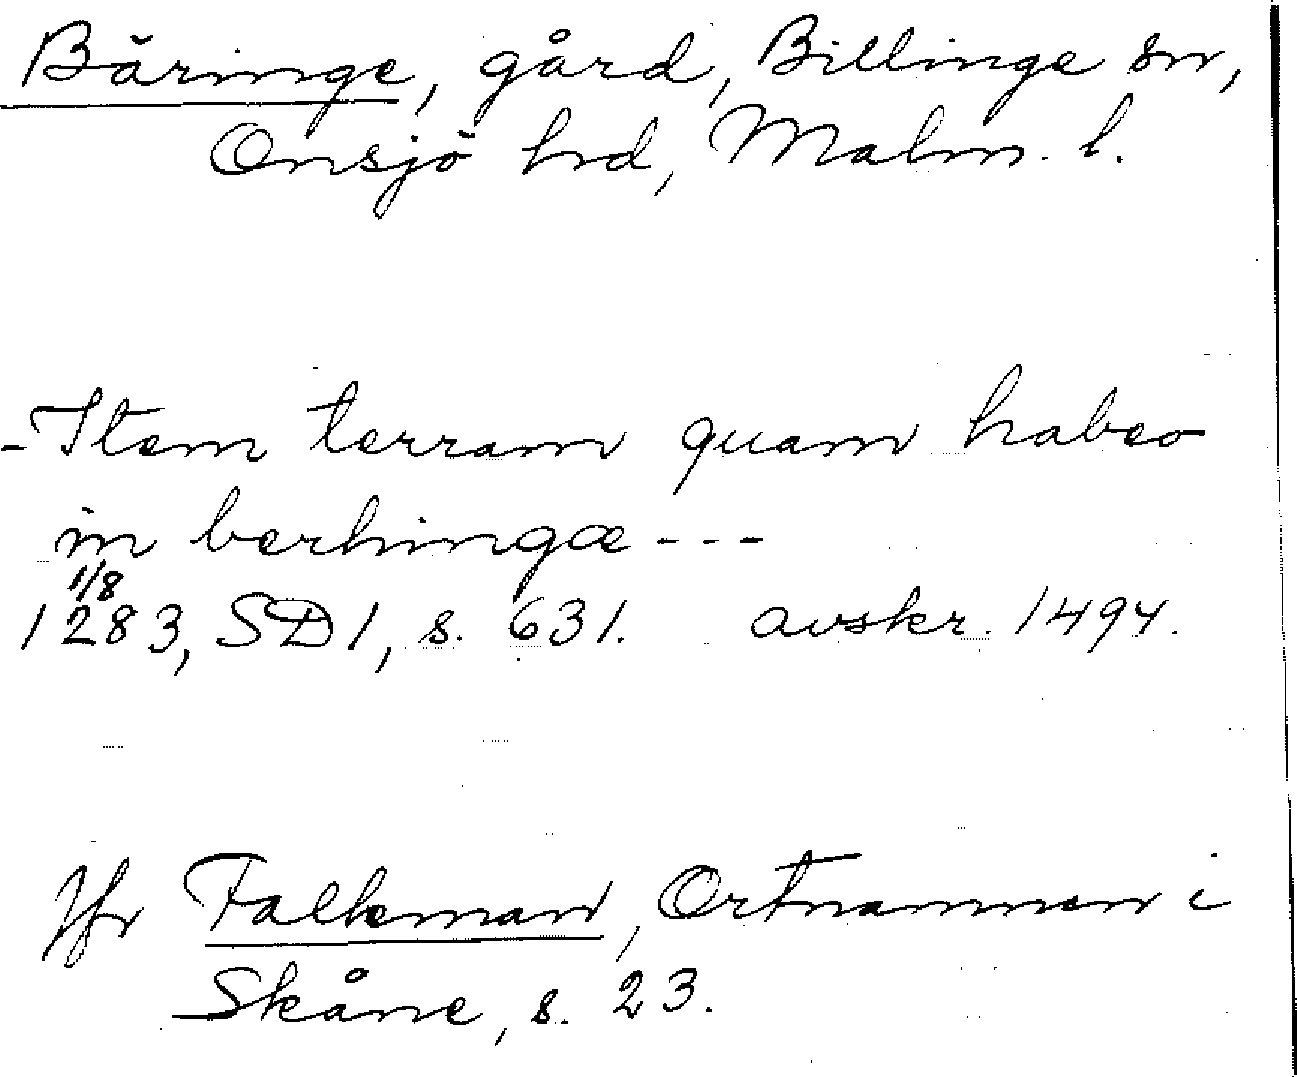 Bäringe, gård, Billinge sn,
Onsjö hrd, Malm. l.
-Item terram quam habeo
in berhingæ ---
1/8
1283, SD1, s. 631. avskr. 1494.
Jfr Falkman, Ortnamnen i
Skåne, s. 23.